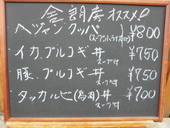 金朝房 オススメ
ヘジャンクッパ ¥800
(スープ、ライス付)
イカ.プルコギ丼 ¥750
スープ付
豚.プルコギ丼 ¥750
スープ付
タッカルビ(鳥肉)丼 ¥700
スープ付